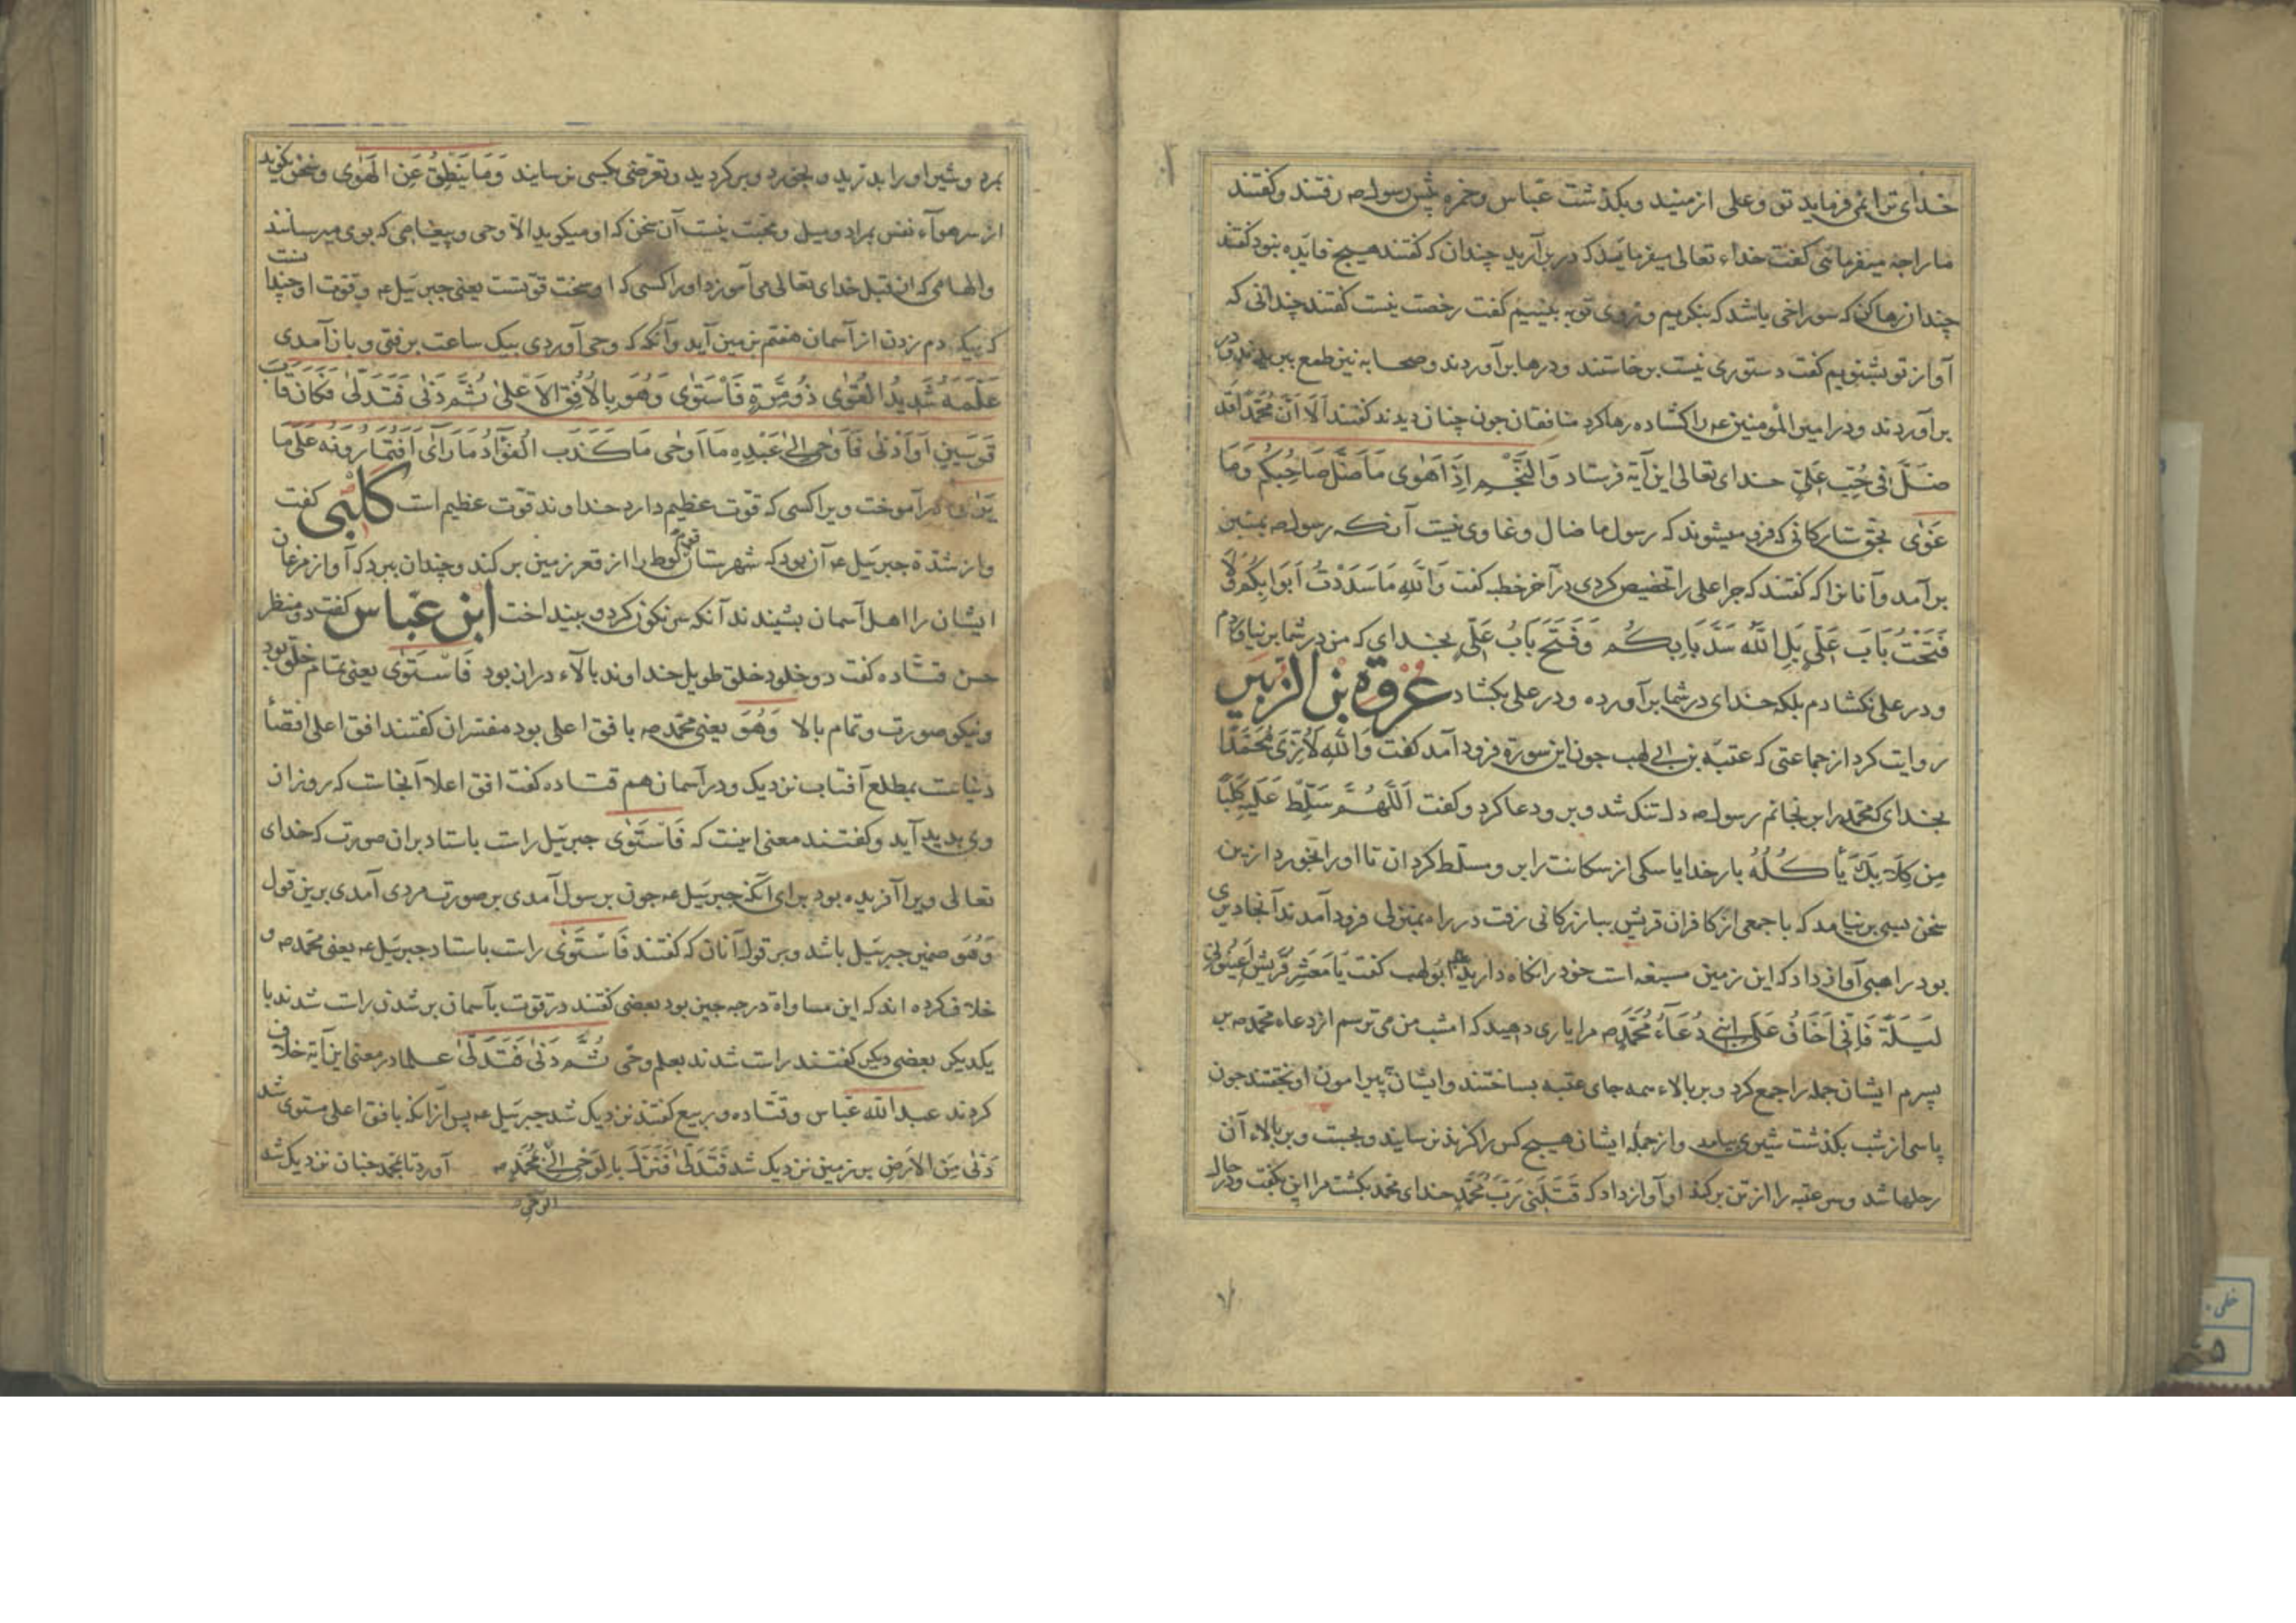 خدای ترا نمی فرماید تو و علی از منید و بگذشت عباس و حمزه پیش رسول صه رفتند و گفتند
ما را چه میفرمائی گفت خداء تعالی میفرمایذ که در برآرید چندان که گفتند هیچ فایده نبود گفتند
چندان رها کن که سوراخی باشد که بنگریم و روی تو به بینیم گفت رخصت نیست گفتند چندانی که
آواز تو بشنویم گفت دستوری نیست برخاستند و درها برآوردند و صحابه نیز طمع ببریدند و در
برآوردند و در امیر المؤمنین عه را گشاده رها کرد منافقان چون چنان دیدند گفتند اَلا اَنَّ مُحَمَّداً قَد
ضَلَّ فی حُبِّ عَلیّ خدای تعالی این آیة فرستاد وَالنَّجْمِ اِذَا هَوٰی مَا ضَلَّ صَاحِبُکُم وَمَا
غَوٰی بحق ستارکانی که فرو میشوند که رسول ما ضال و غاوی نیست آنکه رسول صه بمنبر
برآمد و آنانرا که گفتند که چرا علی را تخصیص کردی در آخر خطبه گفت وَاللّٰهِ مَا سَدَدْتُ اَبْوَابَکُم وَلَا
فَتَحْتُ بَابَ عَلِیّ بَلِ اللّٰهُ سَدَّ بَابَکُم وَفَتَحَ بَابُ عَلِیّ بخدای که من در شما بر نیاوردم
و در علی نکشادم بلکه خدای در شما برآورده و در علی بکشاد عُروَة بن الزُبَیر
روایت کرد از جماعتی که عتبة بن ابی لهب چون این سورة فرود آمد گفت وَاللّٰهِ لَأُوذِیَ مُحَمَّداً
بخدای که محمد را برنجانم رسول صه دلتنک شد و برو دعا کرد و گفت اَللّٰهُمَّ سَلِّطْ عَلَیهِ کَلْباً
مِن کِلَابِکَ یَأکُلُهُ بار خدایا سکی از سکانت را برو مسلط کردان تا او را بخورد ازین
سخن بسی برنیامد که با جمعی از کافران قریش ببازرکانی رفت در راه بمنزلی فرود آمدند آنجا دیری
بود راهبی آواز داد که این زمین مسبعه است خود را نکاه دارید ابو لهب گفت یَا مَعْشَرَ قُرَیْش اَعِینُونِی
لَیْلَةً فَاِنّی اَخَافُ عَلَی ابْنِی دُعَاءُ مُحَمَّدٍ صه مرا یاری دهید که امشب من می ترسم از دعاء محمد صه بر
پسرم ایشان جمله را جمع کرد و بر بالاء همه جای عتبه بساختند و ایشان پیرامون او بخفتند چون
پاسی از شب بگذشت شیری بیامد و از جمله ایشان هیچ کس را کزند نرسانید و بجست و بر بالاء آن
رحلها شد و سر عتبه را از تن برکند او آواز داد که قَتَلَنی رَبَّ مُحَمَّدٍ خدای محمد بکشت مرا این بگفت و در حال
بمرد و شیر او را بدرید و بخورد و برکردید و تعرضی بکسی نرسانید وَمَا یَنطِقُ عَنِ الهَوٰی و سخن نکوید
از سر هوآء نفس بمراد و میل و محبت نیست آن سخن که او میکوید الا وحی و پیغامی که بوی میرسانند
والهامی که از قبل خدای تعالی می آموزد او را کسی که او سخت قوتست یعنی جبرئیل عه و قوت او چندانست
که بیک دم زدن از آسمان هفتم بزمین آید و آنکه که وحی آوردی بیک ساعت برفتی و باز آمدی
عَلَّمَهُ شَدِیدُ القُوٰی ذُو مِرَّةٍ فَاسْتَوٰی وَهُوَ بِالاُفُقِ الاَعْلیٰ ثُمَّ دَنٰی فَتَدَلّٰی فَکَانَ قَابَ
قَوسَینِ اَو اَدْنٰی فَاَوحٰی اِلیٰ عَبْدِهِ مَا اَوحٰی مَا کَذَبَ الفُؤَادُ مَا رَاٰی اَفَتُمَارُونَهُ عَلٰی مَا
یَرٰی در آموخت ویرا کسی که قوت عظیم دارد خداوند قوت عظیم است کلبی گفت
و از شدة جبرئیل عه آن بود که شهرستان قوم لوط را از قعر زمین برکند و چندان ببرد که آواز مرغان
ایشان را اهل آسمان بشنیدند آنکه سرنکون کرد و بینداخت ابن عباس گفت ذو منظر
حسن قتاده گفت ذو خلود خلق طویل خداوند بالاء دران بود فَاسْتَوٰی یعنی تمام خلق بود
و نیکو صورت و تمام بالا وَهُوَ یعنی محمد صه بافق اعلی بود مفسران گفتند افق اعلی اقصا
دنیاست بمطلع آفتاب نزدیک و در آسمان هم قتاده گفت افق اعلا آنجاست که روز ازان
وی پدید آید و گفتند معنی اینست که فَاسْتَوٰی جبرئیل راست باستاد بران صورت که خدای
تعالی ویرا آفریده بود برای آنکه جبرئیل عه چون بر رسول آمدی بر صورت مردی آمدی برین قول
وَهُوَ ضمیر جبرئیل باشد و بر قول آنان که گفتند فَاسْتَوٰی راست باستاد جبرئیل عه یعنی محمد صه و
خلاف کرده اند که این مساواة در چه چیز بود بعضی گفتند در قوت بآسمان بر شدن راست شدند با
یکدیکر بعضی دیکر گفتند راست شدند بعلم وحی ثُمَّ دَنٰی فَتَدَلّٰی علما در معنی این آیة خلاف
کردند عبد الله عباس و قتاده و ربیع گفتند نزدیک شد جبرئیل عه پس ازانکه بافق اعلی مستوی شد
دَنٰی مِنَ الاَرضِ بر زمین نزدیک شد فَتَدَلّٰی فَنَزَلَ بِالوَحْیِ اِلیٰ مُحَمَّدٍ صه آورد تا بمحمد چنان نزدیک شد